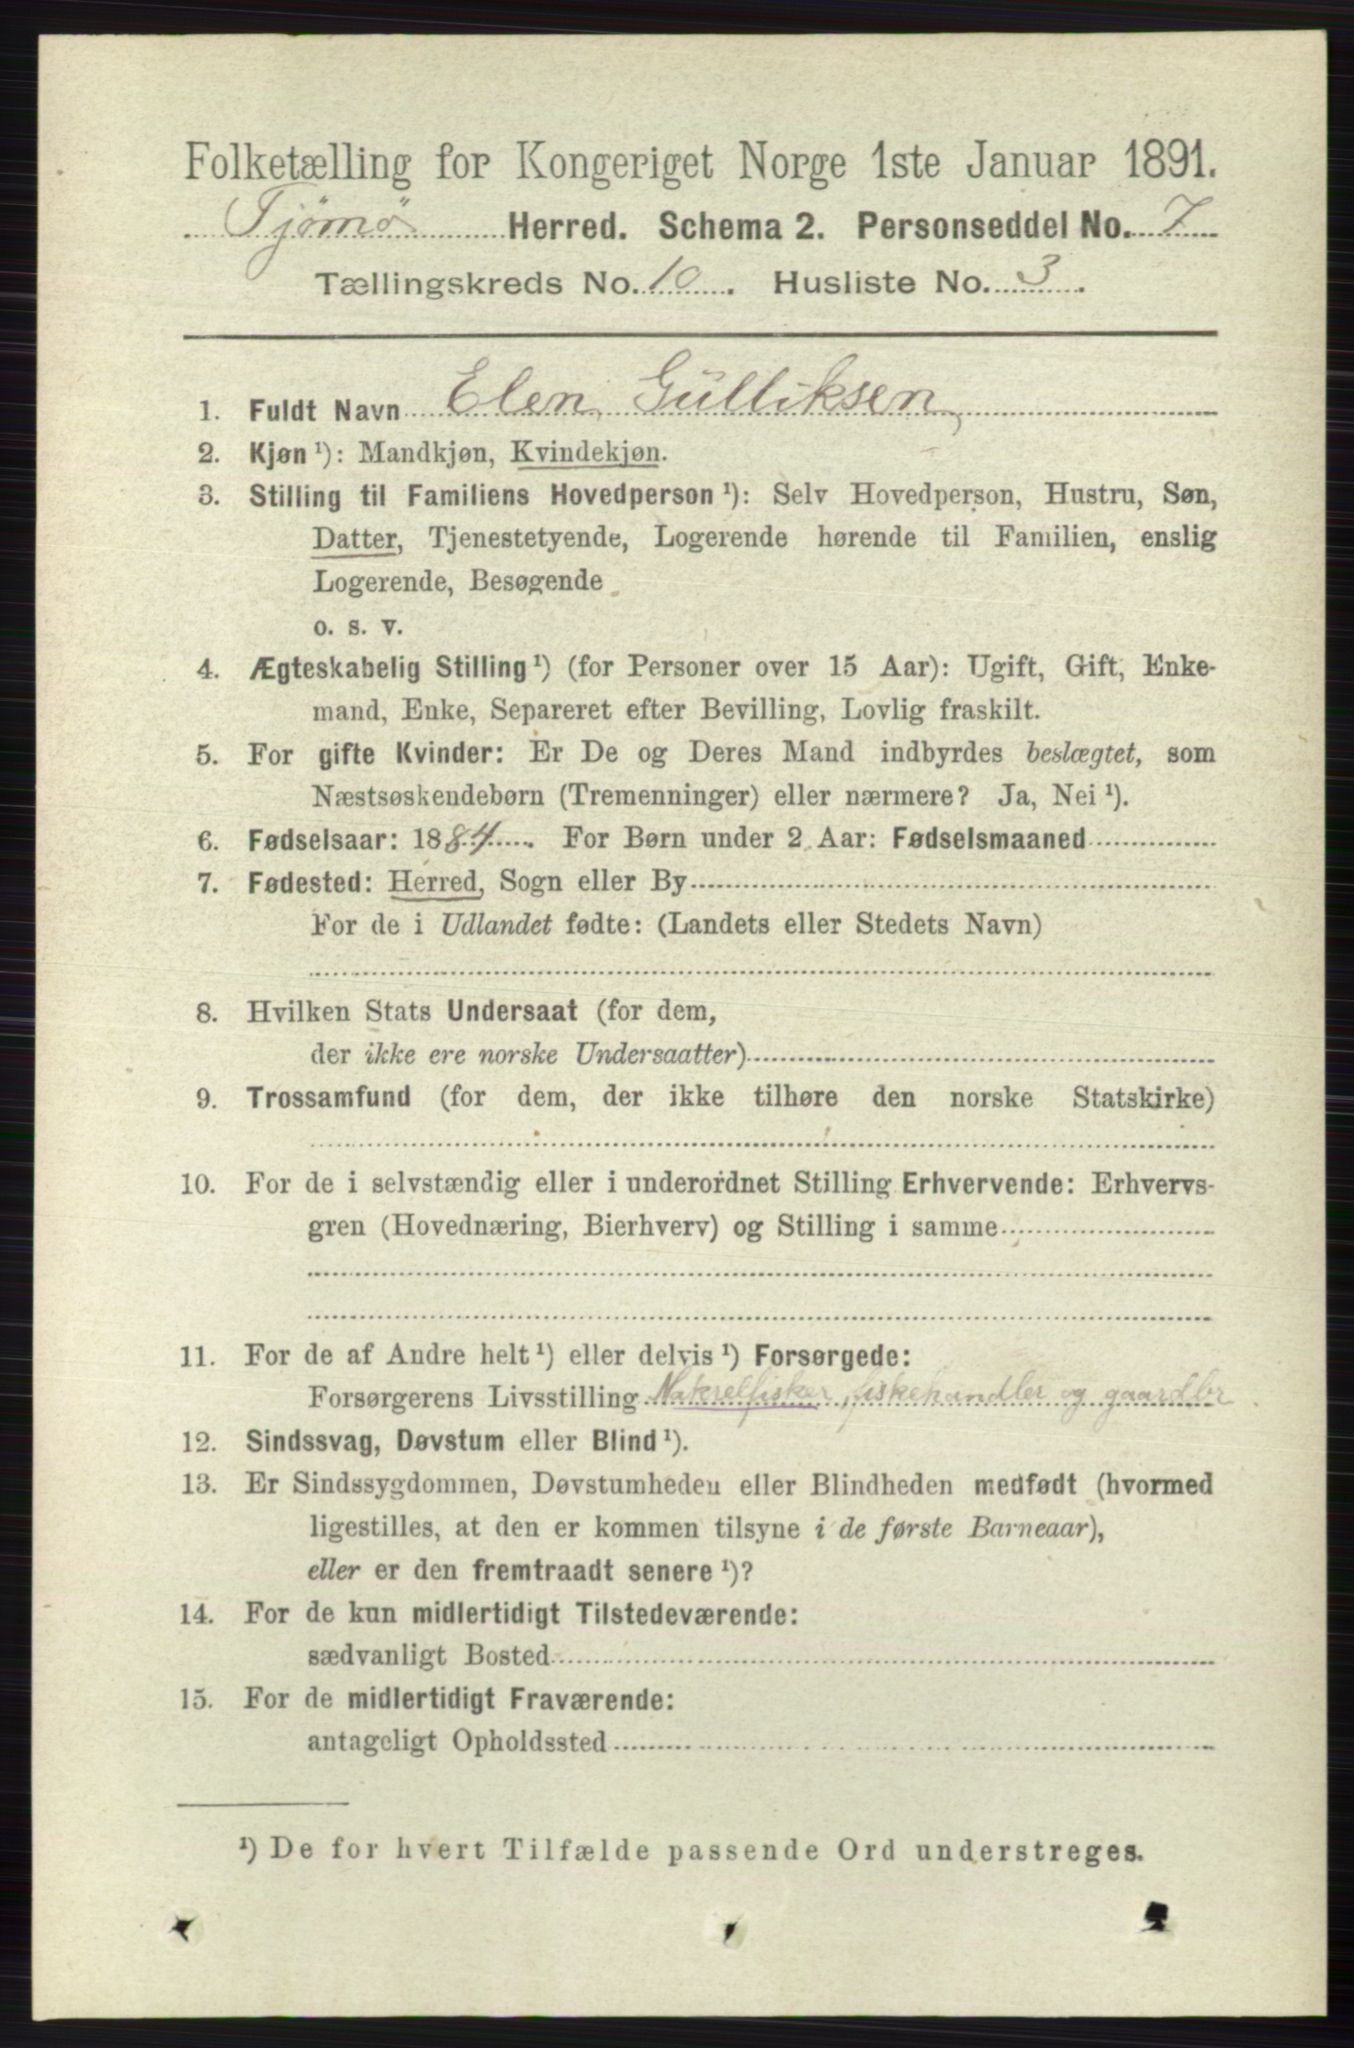 Folketælling for Kongeriget Norge 1ste Januar 1891.
Tjømø Herred. Schema 2. Personseddel No. 7
Tællingskreds No. 10. Husliste No. 3.
1. Fuldt Navn Elen Gülliksen
2. Kjøn ¹): Mandkjøn, Kvindekjøn.
3. Stilling til Familiens Hovedperson ¹): Selv Hovedperson, Hustru, Søn,
Datter, Tjenestetyende, Logerende hørende til Familien, enslig
Logerende, Besøgende
o. s. v.
4. Ægteskabelig Stilling ¹) (for Personer over 15 Aar): Ugift, Gift, Enke-
mand, Enke, Separeret efter Bevilling, Lovlig fraskilt.
5. For gifte Kvinder: Er De og Deres Mand indbyrdes beslægtet, som
Næstsøskendebørn (Tremenninger) eller nærmere? Ja, Nei ¹).
6. Fødselsaar: 1884. For Børn under 2 Aar: Fødselsmaaned
7. Fødested: Herred, Sogn eller By
For de i Udlandet fødte: (Landets eller Stedets Navn)
8. Hvilken Stats Undersaat (for dem,
der ikke ere norske Undersaatter)
9. Trossamfund (for dem, der ikke tilhøre den norske Statskirke)
10. For de i selvstændig eller i underordnet Stilling Erhvervende: Erhvervs-
gren (Hovednæring, Bierhverv) og Stilling i samme
11. For de af Andre helt ¹) eller delvis ¹) Forsørgede:
Forsørgerens Livsstilling Makrelfisker, fiskehandler og gaardbr
12. Sindssvag, Døvstum eller Blind ¹).
13. Er Sindssygdommen, Døvstumheden eller Blindheden medfødt (hvormed
ligestilles, at den er kommen tilsyne i de første Barneaar),
eller er den fremtraadt senere ¹)?
14. For de kun midlertidigt Tilstedeværende:
sædvanligt Bosted
15. For de midlertidigt Fraværende:
antageligt Opholdssted
¹) De for hvert Tilfælde passende Ord understreges.